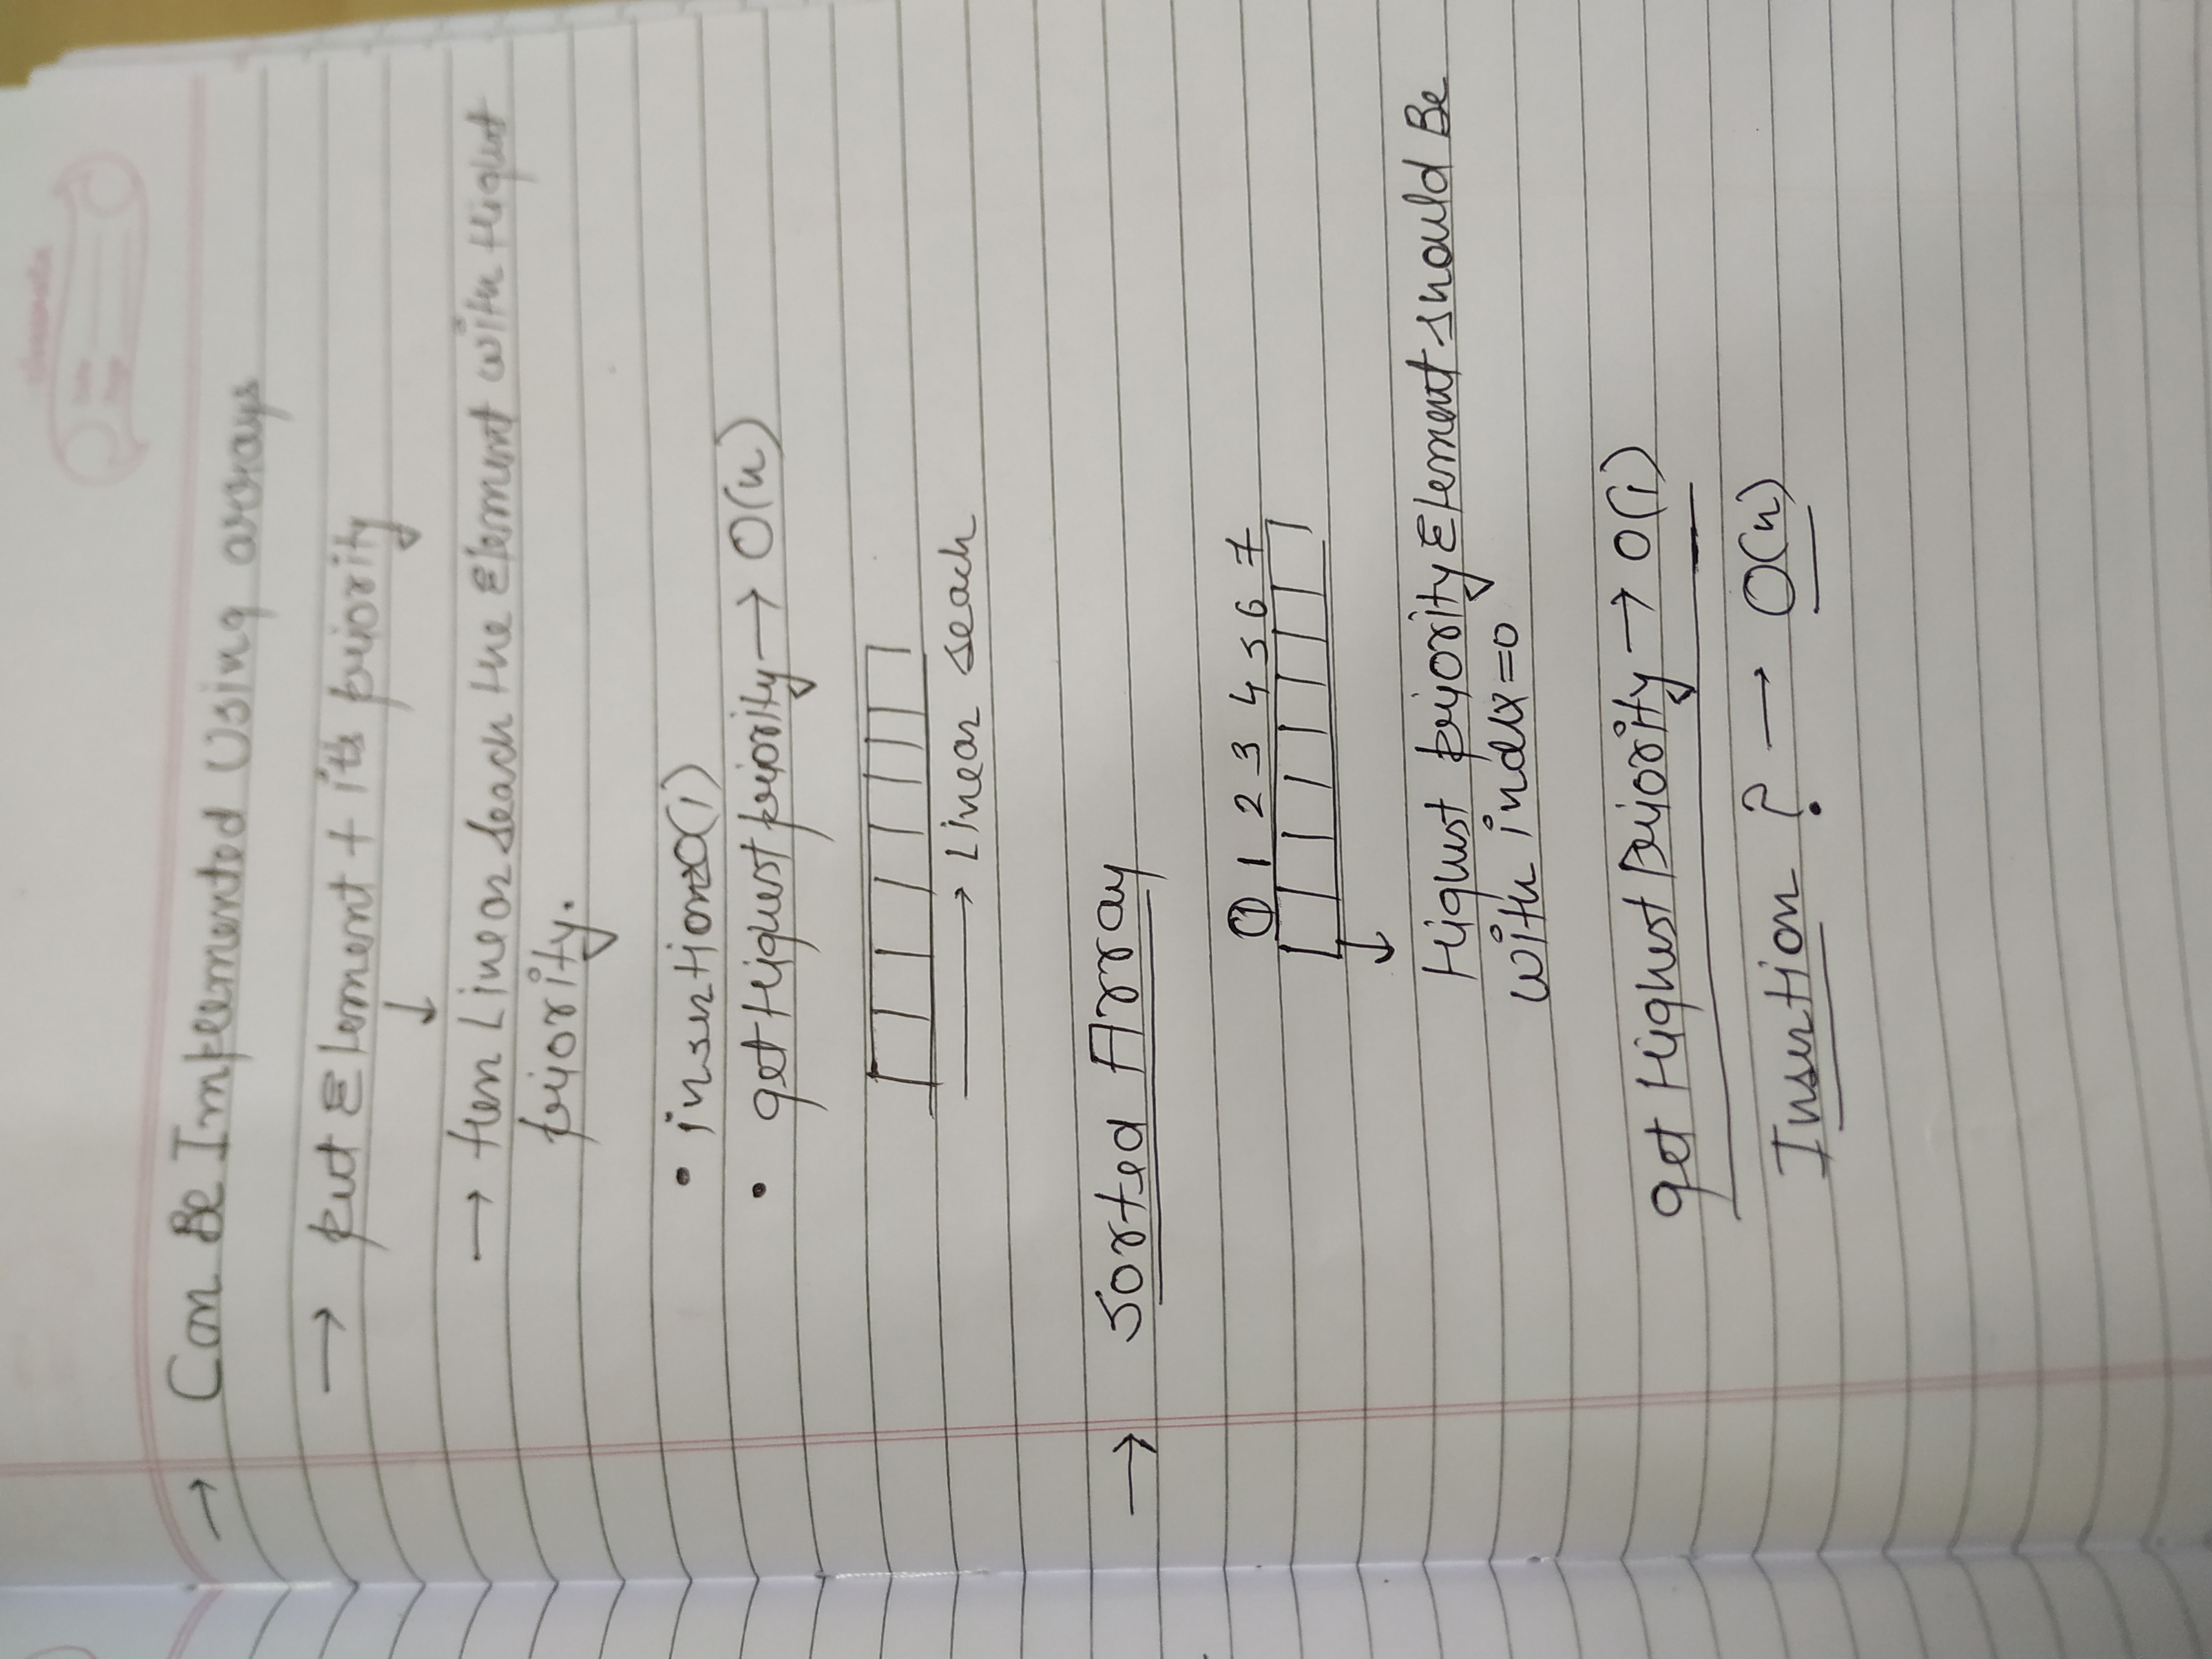 → Can Be Implemented Using arrays
→ put Element + it's priority
↓
→ then Linear seach the Element with Highest
priority.
• insertion → O(1)
• get Highest priority → O(n)
→ Linear seach
→ Sorted Array
0 1 2 3 4 5 6 7
↓
Highest priority Element should Be
with index=0
get Highest Priority → O(1)
Insertion ? → O(n)